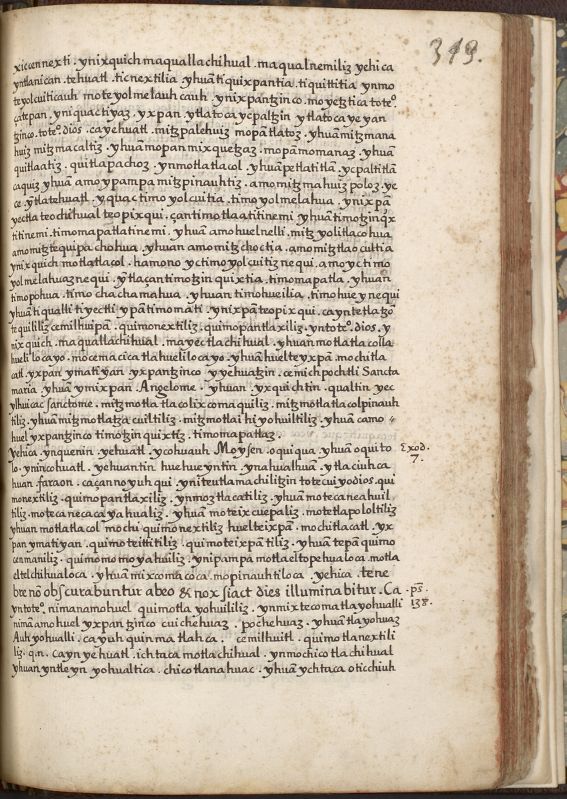 319.
xiccennexti . ynixquich maquallachihual . maqualnemiliz yehica
yntlanican . tehuatl . ticnextilia yhuā tiquixpantia . tiquittitia ynmo
teyolcuiticauh moteyolmelauhcauh . ynixpantzinco . moyetztica totec̄o
çatepan . yniquactiyaz . yxpan . ytlatocaycpaltzin ytlatocayeyan
tzinco . totec̄o . dios . cayehuatl . mitzpalehuiz mopātlatoz . yhuā mitzmana
huiz mitzmacaltiz . yhuā mopan mixquetzaz . mopamomanaz . yhuā
quitlaatiz . quitlapachoz . ynmotlatlacol . yhuā petlatitlā . ycpaltitlā
caquiz yhuā amo ypampa mitzpinauhtiz . amo mitzmahuizpoloz . ye
ce . ytlatehuatl . yquac timoyolcuitia . timoyolmelahua . ynixpā
yectlateochihual teopixqui . çan timotlaatitinemi yhuā timotzinq̄x
titinemi . timomapatlatinemi . yhuā amohuelnelli . mitzyolitlacohua
amo mitztequipachohua . yhuan amo mitzchoctia . amo mitztlaocultia
ynixquich motlatlacol . hamono yc timoyolcuitiznequi . amo yc timo
yolmelahuaznequi . ytlaçan timotzinquixtia . timomapatla . yhuan
timopohua . timochachamahua . yhuan timohueilia , timohueynequi
yhuā tiqualli tiyectli ypā timomati . ynixpā teopixqui . cayntetlatzō
tequililiz cemilhuipā . quimonextiliz . quimopantlaxiliz . yntotec̄o . dios . y
nixquich . maquallachihual . mayectlachihual . yhuan motlatlacolla
huelilocayo . mocemacicatlahuelilocayo . yhuā huelteyxpā . mochitla
catl . yxpan ymatiyan . yxpantzinco yyehuatzin . cemichpochtli Sancta
maria . yhuā ymixpan . Angelome . yhuan . yxquichtin . qualtin yec
ylhuicac sanctome . mitzmotlatlacolixcomaquiliz . mitzmotlatlacolpinauh
tiliz . yhuā mitzmotlatzacuiltiliz . mitzmotlaihiyohuiltiliz . yhuā camo
huel yxpantzinco timotzinquixtiz . timomapatlaz .
yehica . ynquenin yehuatl . ycohuauh Moysen . oquiqua . yhuā oquito Exod.
lo . ynincohuatl . yehuantin huehueyntin . ynahualhuā . ytlaciuhca 7.
huan . faraon . caçannoyuhqui yniteutlamachiliztzin totecuiyodios . qui
monextiliz . quimopantlaxiliz . ynmoztlacatiliz . yhuā motecaneahuil
tiliz . motecanecacayahualiz . yhuā moteixcuepaliz . motetlapololtiliz
yhuan motlatlacol mochi quimonextiliz huelteixpā . mochitlacatl . yx
pan ymatiyan . quimoteittitiliz . quimoteixpātiliz . yhuā tepā quimo
cenmaniliz . quimomomoyahuiliz . ynipampa motlaeltopehualoca . motla
eltelchihualoca . yhuā mixcomacoca . mopinauhtiloca . yehica . tene
bre nō obscurabuntur abeo & nox siact dies illuminabitur . Ca . ps̄.
yntotec̄o . niman amohuel quimotlayohuililiz . ynmixtecomatlayohualli 138.
nimā amohuel yxpantzinco cuichehuaz . pochehuaz . yhuā tlayohuaz
Auh yohualli . cayuh quinmatlahca . cemilhuitl . quimotlanextili
liz . q.n. caynyehuatl . ichtaca motlachihual . ynmochicotlachihual
yhuan yntleyn . yohualtica . chicotlanahuac . yhuā ychtaca oticchiuh